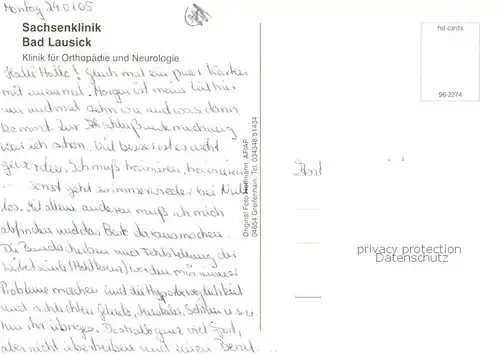 Montag 24.01.05
Sachsenklinik
Bad Lausick
Klinik für Orthopädie und Neurologie
Halli Hallo! Gleich mal ein paar Karten
mit einmal. Morgen ist meine Zeit hier
um und mal sehn wo und was dann
kommt. Zur Abschlußuntersuchung
war ich schon, viel besser ist es nicht
geworden. Ich muß trainieren, trainieren
... sonst geht es immer wieder bei Null
los. Mit allem anderen muß ich mich
abfinden und das Beste daraus machen.
Die Bandscheiben und Fehlstellung der
Wirbelsäule (Hohlkreuz) werden mir immer
Probleme machen und die Hyperbeweglichkeit
und schlechten Gelenke, Muskeln, Sehnen u.s.w.
tun ihr übriges. Deshalb ganz viel Sport,
aber nicht übertreiben und einen Beruf
Original Foto Hoffmann, AFIAP
04654 Greifenhain, Tel. 034348/51434
hd-cards
96-2274
privacy protection
Datenschutz